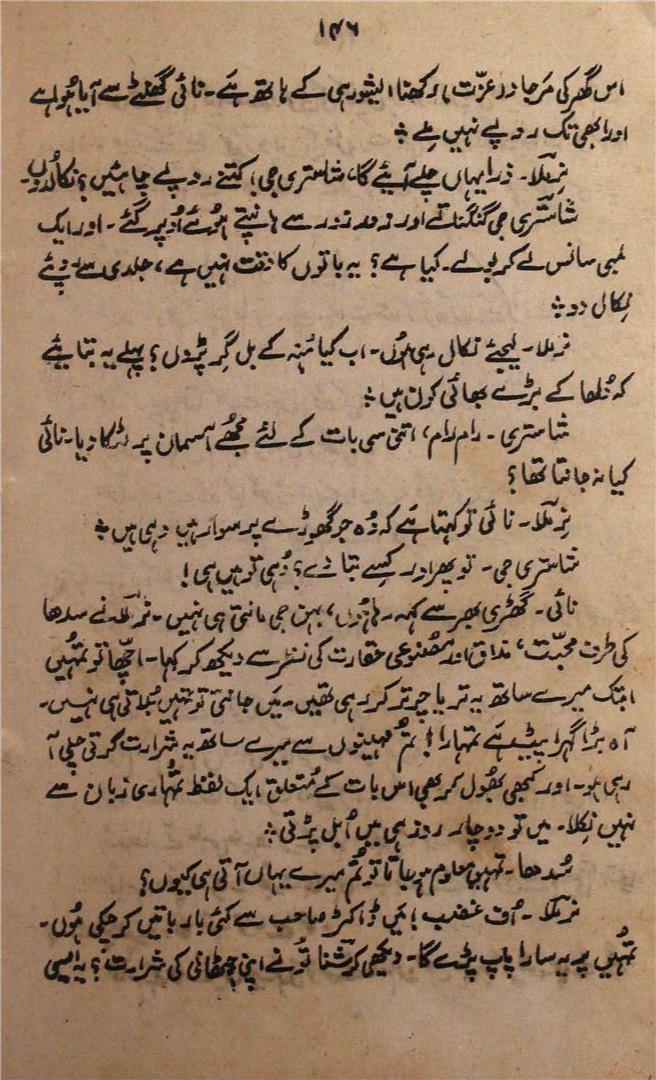 ۱۴۶
اس گھر کی مرجاد (عزّت) رکھنا ایشور ہی کے ہاتھ ہے۔ نائی گھنٹے سے آیا ہُوا ہے
اور ابھی تک روپے نہیں مِلے ؞
نِرمَلا۔ ذرا یہاں چلے آیئے گا، شاستری جی! کتنے روپلے چاہئیں؟ نکالدوں۔
شاستری جی گنگناتے اور زور زور سے ہانپتے ہُوئے اُوپر گئے۔ اور ایک
لمبی سانس لے کر بولے۔ کیا ہے؟ یہ باتوں کا وقت نہیں ہے، جلدی سے روپئے
نِکال دو ؞
نرملا۔ لیجئے نکال رہی ہُوں۔ اب کیا مُنہ کے بل گِر پڑوں؟ پہلے یہ بتایئے
کہ دُلھا کے بڑے بھائی کون ہیں ؞
شاستری۔ رام رام، اتنی سی بات کے لئے مجھے آسمان پر لٹکا دیا۔ نائی
کیا نہ جانتا تھا؟
نِرمَلا۔ نائی تو کہتا ہَے کہ وُہ جو گھوڑے پر سوار ہیں وہی ہیں ؞
شاستری جی۔ تو پھر اور کسِے بتا دے؟ وُہی تو ہیں ہی!
نائی۔ گھڑی بھر سے کہہ رہا ہُوں، بہن جی مانتی ہی نہیں۔ نرملا نے سدھا
کی طرف محبّت، مذاق اور مصنوعی حقارت کی نظر سے دیکھ کر کہا۔ اچّھا تو تمُہیں
ابتک میرے ساتھ یہ تریا چرتر کر رہی تھیں۔ مَیں جانتی تو تمہیں بُلاتی ہی نہیں۔
آہ بڑا گہرا پیٹ ہَے تمہارا! تُم مہینوں سے میرے ساتھ یہ شرارت کرتی چلی آ
رہی ہو۔ اور کبھی بھُول کر بھی اس بات کے مُتعلق ایک لفظ تمُہاری زبان سے
نہیں نِکلا۔ میں تو دو چار روز ہی میں اُبل پڑتی ؞
سُدھا۔ تمہیں معلوم ہو جاتا تو تُم میرے یہاں آتی ہی کیوں؟
نرمَلا۔ اُف غضب! مَیں ڈاکٹر صاحب سے کئی بار باتیں کر چکی ہُوں۔
تمُہیں پر یہ سارا پاپ پڑے گا۔ دیکھی کرشنا تُو نے اپنی جٹھانی کی شرارت؟ یہ ایسی